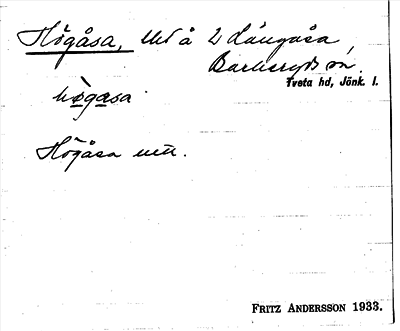 Högåsa, utj å 2 Långåsa,
Barkeryds sn.
Tveta hd, Jönk. l.
högasa
Högåsa utj.
FRITZ ANDERSSON 1933.